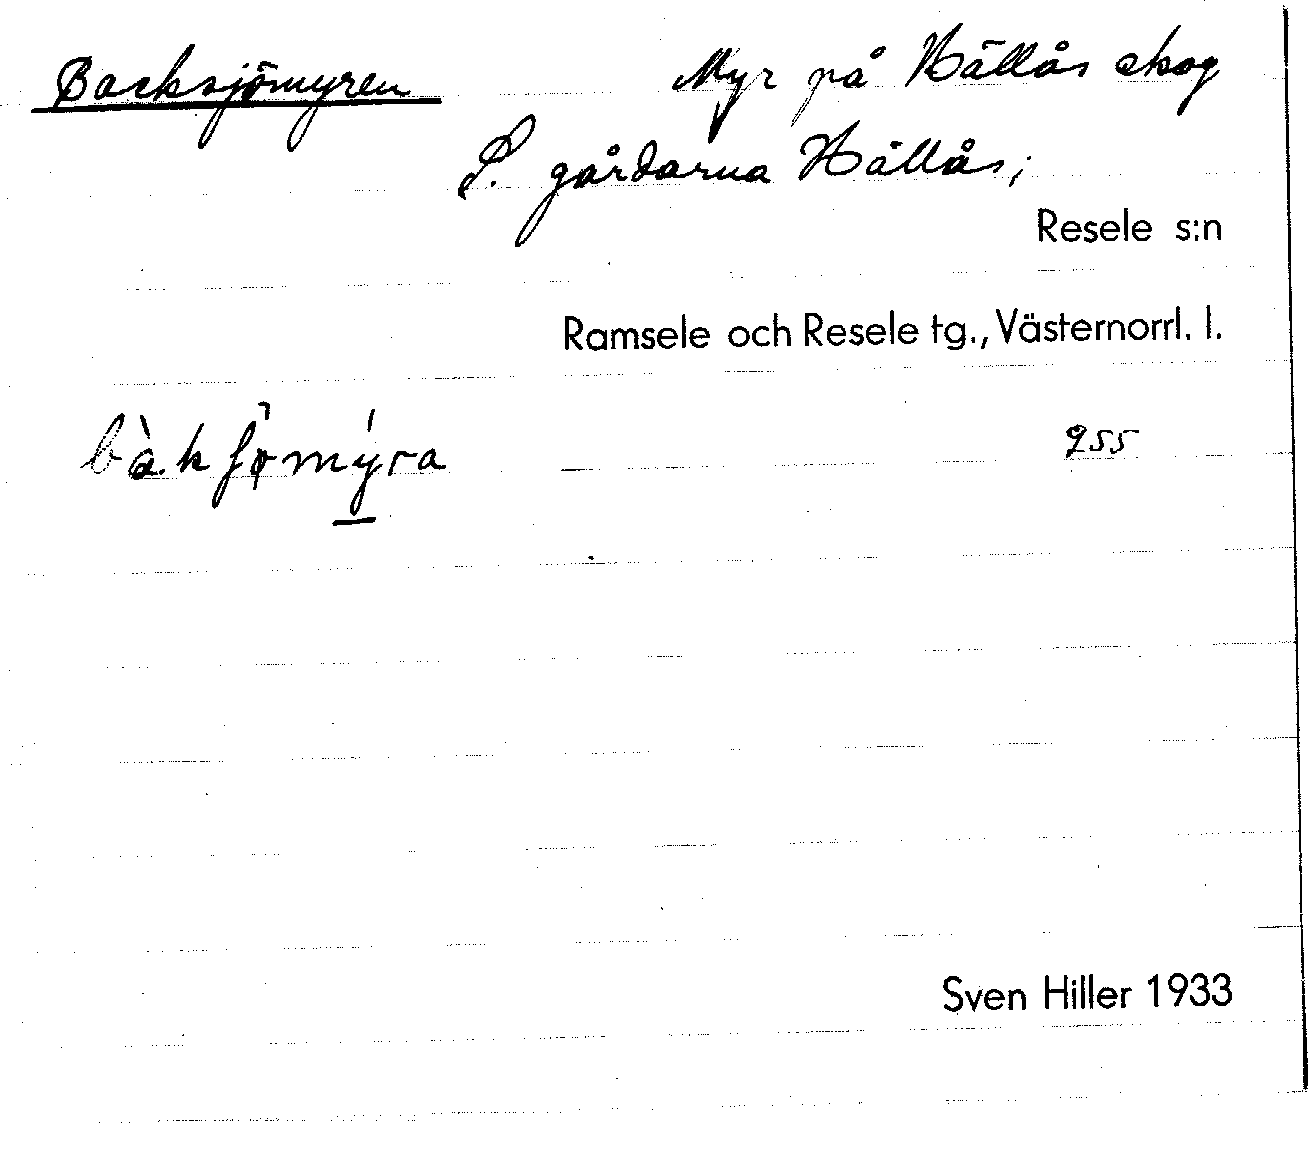 Backsjömyren Myr på Hällås skog
S. gårdarna Hällås;
Resele s:n
Ramsele och Resele tg., Västernorrl. l.
255
Sven Hiller 1933